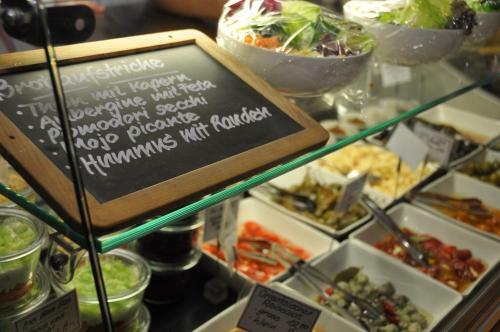 Brotaufstriche
• Thun mit Kapern
• Aubergine mit Feta
• Pomodori secchi
• Mojo picante
• Hummus mit Randen